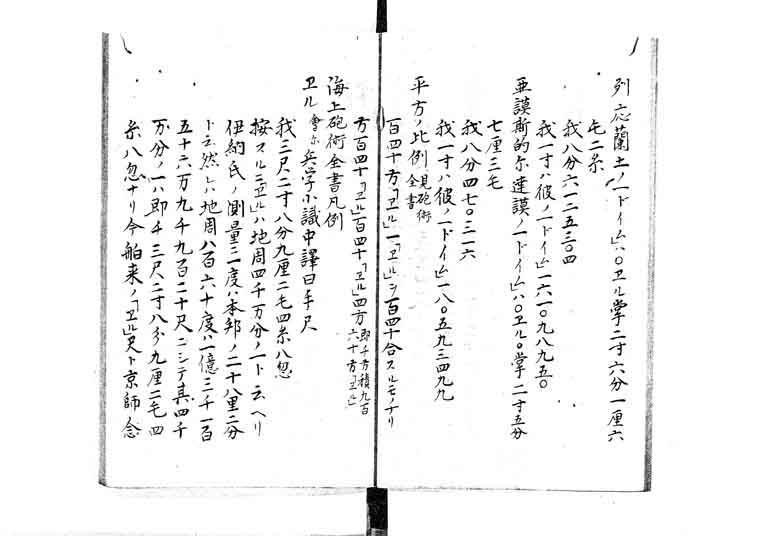 列応蘭土ノ一ドイム八〇ヱル掌二寸六分一厘六
毛二糸
我八分六一二五三〇四
我一寸ハ彼ノ一ドイム一六一〇九八九五〇
亜謨斯的尓達謨ノ一ドイム八〇ヱル〇掌二寸五分
七厘三毛
我八分四七〇三一六
我一寸ハ彼ノ一ドイム一八〇五九三四九九
平方ノ比例見砲術全書
百四十方「ヱル」一「ヱル」ヲ百四十合スルモノナリ
方百四十「ヱル」百四十「ヱル」四方即千方積九百六十方「ヱル」
海上砲術全書凡例
ヱル 兵学小識中譯曰手尺
我三尺二寸八分九厘二毛四糸八忽
按スルニ「ヱル」ハ地周四千万分ノ一ト云ヘリ
伊納氏ノ測量三一度ハ本邦ノ二十八里二分
ト云然レハ地周八百六十度ハ一億三千一百
五十六万九千九百二十尺ニシテ其四千
万分ノ一ハ即チ三尺二寸八分九厘二毛四
糸八忽ナリ今舶来ノ「ヱル」尺ト京師念